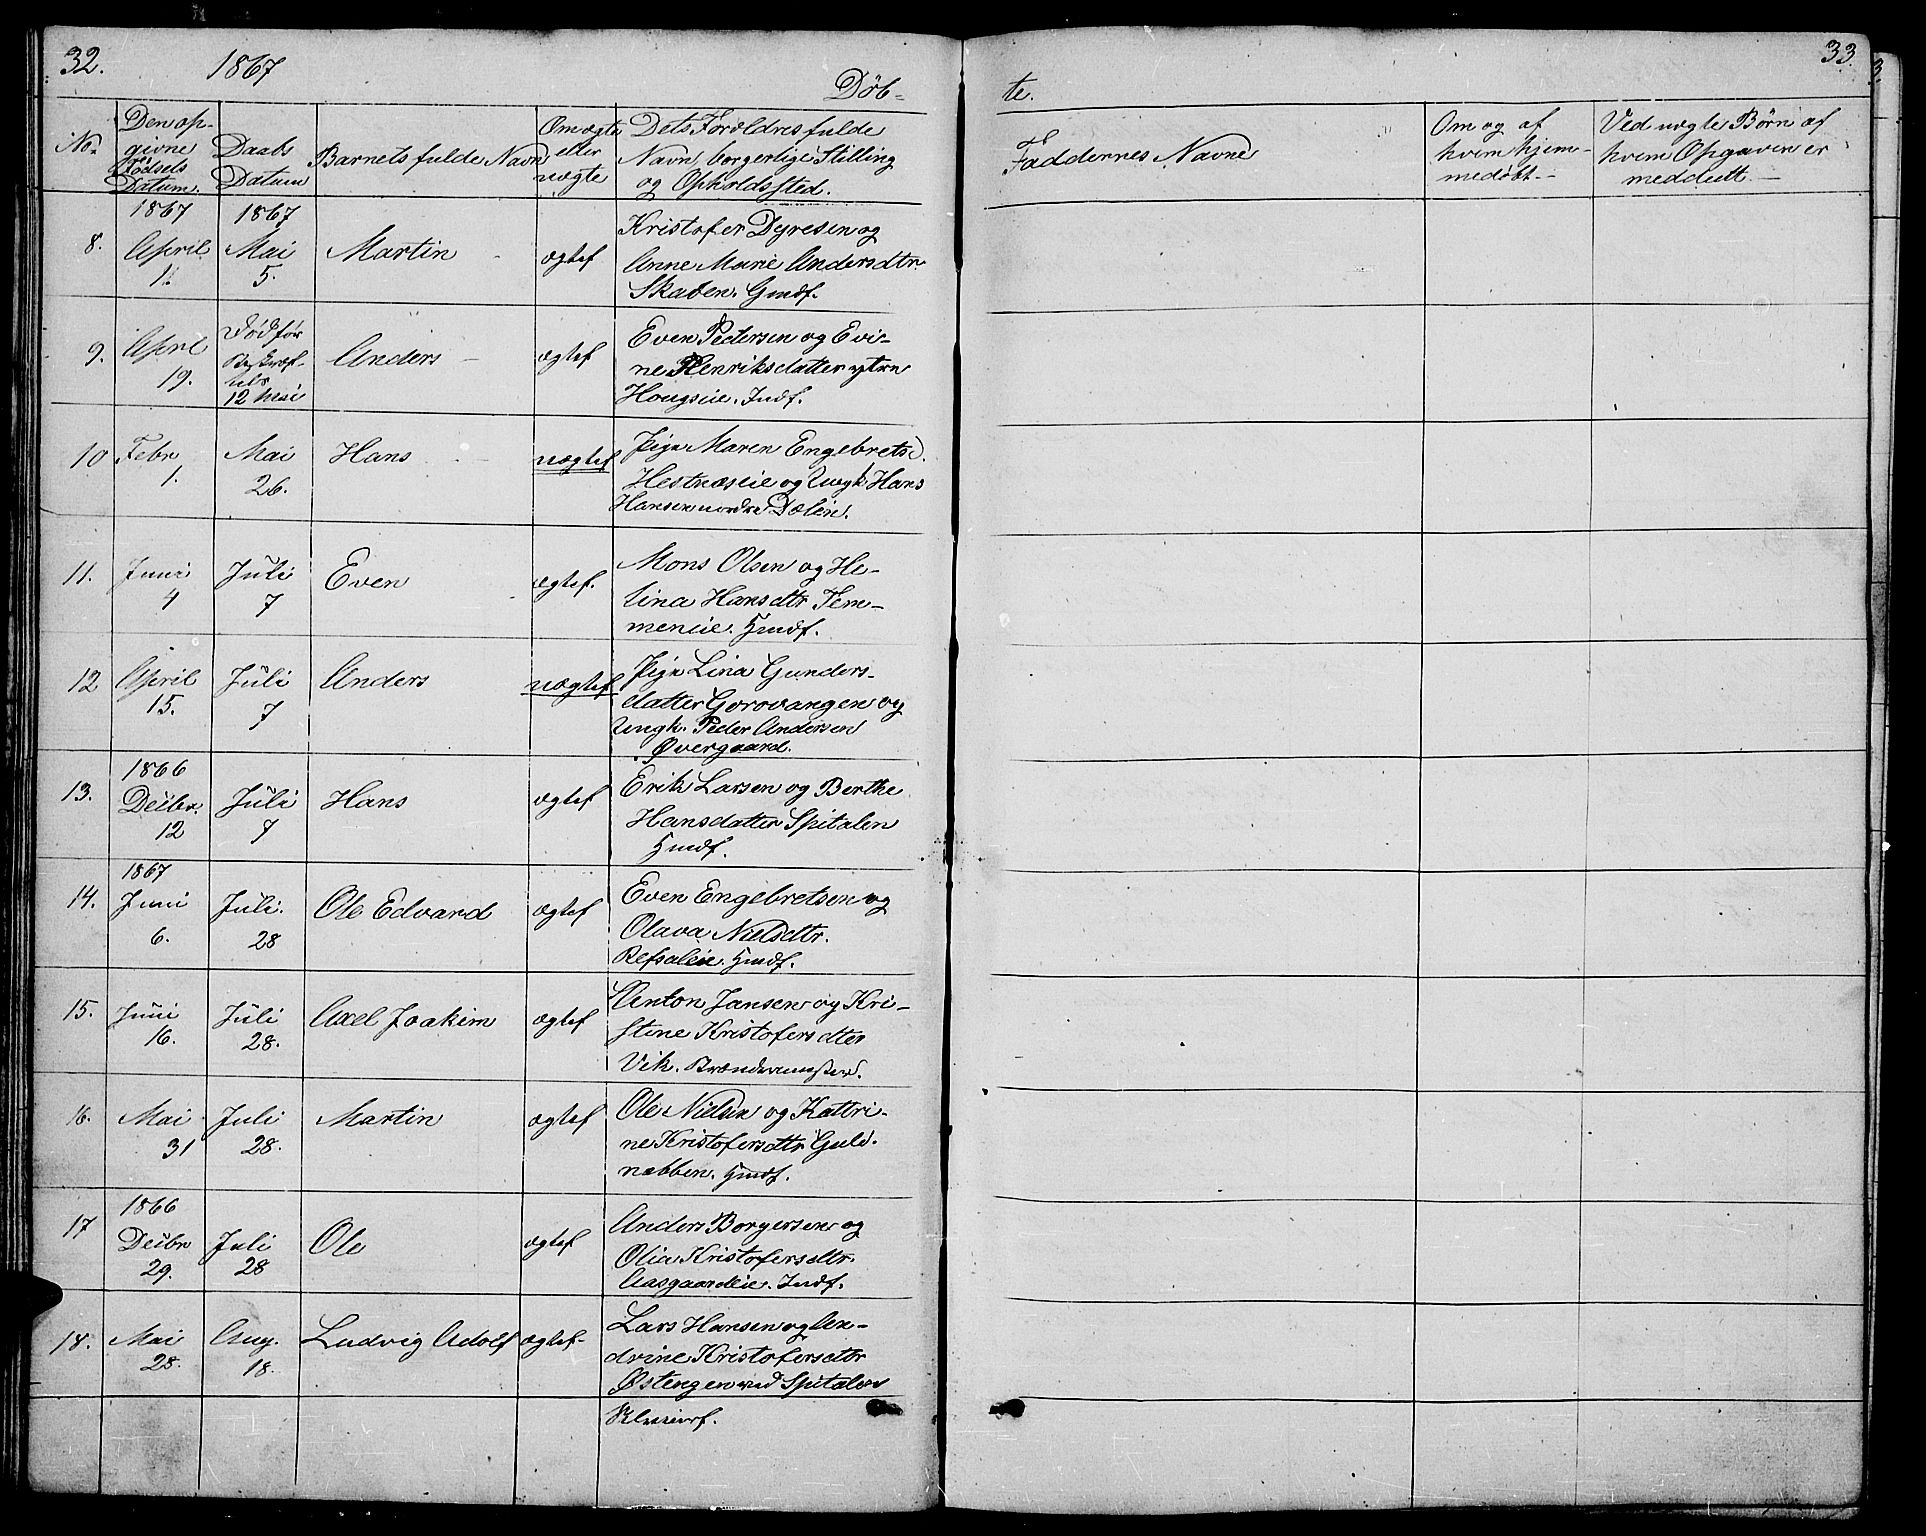 32. 1867 Døb- te. 33.
No. Den op- givne Fødsels Datum. Daabs Datum Barnets fulde Navn Om ægte eller uægte Dets Forældres fulde Navn borgerlige Stilling og Opholdssted. Faddernes Navne Om og af hvem hjem- medøbt.- Ved uægte Børn af hvem Opgaven er meddeelt.-
8. 1867 April 11. 1867 Mai 5. Martin ægtef
Kristofer Dyresen og
Anne Marie Andersdtr
Skaben. Gmdf.
9. April 19. Død før 12 Mai Anders ægtef
Even Pedersen og Evi-
ne Henriksdatter ytre
Hougseie. Indf.
10 Febr 1. Mai 26. Hans uægtef
Pige Maren Engebretsd.
Hestnæseie og Ungk Hans
Hansen nordre Dælin.
11. Juni 4 Juli 7 Even ægtef.
Mons Olsen og He-
lina Hansdtr Tem-
meneie. Hmdf.
12 April 15. Juli 7 Anders uægtef
Pige Lina Gunders-
datter Gorovangen og
Ungk. Peder Andersen
Øvergaard.
13. 1866 Decbr. 12 Juli 7 Hans ægtef
Erik Larsen og Berthe
Hansdatter Spitalen
Hmdf.
14. 1867 Juni 6. Juli. 28 Ole Edvard ægtef
Even Engebretsen og
Olava Nielsdtr.
Refsaleie. Hmdf.
15. Juni 16. Juli 28. Axel Joakim ægtef
Anton Jansen og Kri-
stine Kristofersdtr
Vik.
16. Mai 31 Juli 28. Martin ægtef
Ole Nielsen og Kattri-
ne Kristofersdtr Guld-
næbben. Hmdf.
17 1866 Decbr 29. Juli 28 Ole ægtef
Anders Borgersen og
Olia Kristofersdtr.
Aasgaardeie. Indf.
18. Mai 28. Aug. 18. Ludvig Adolf ægtef-
Lars Hansen og An-
drine Kristofersdtr
Østengen ved Spitalen